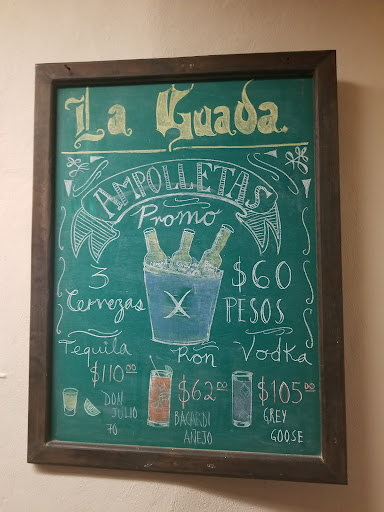 La Guada.
AMPOLLETAS
Promo
3 $60
Cervezas X PESOS
Tequila Ron Vodka
$110.00 $62.00 $105.00
DON JULIO 70 BACARDI AÑEJO GREY GOOSE